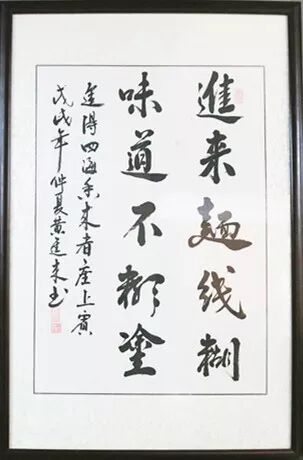 進来麵线糊
味道不糊塗
進得四海香来者座上賓
戊戌年仲夏黄進来书